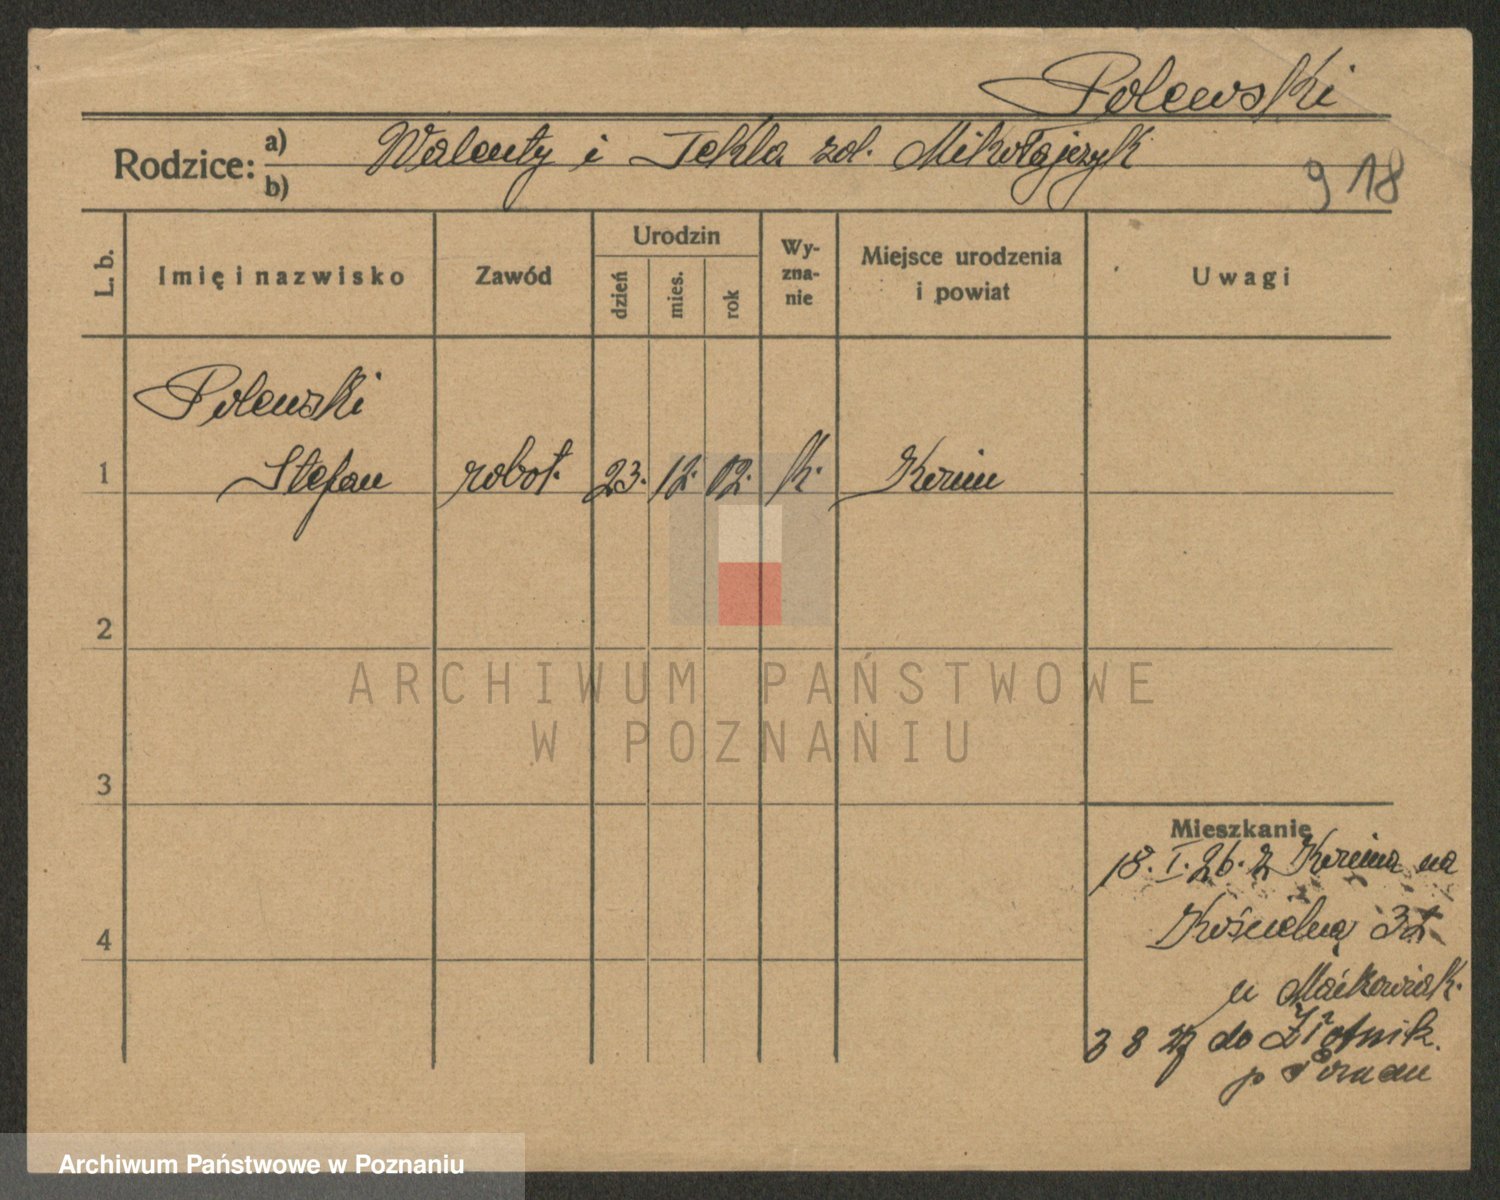 Polewski
Rodzice: a) Walenty i Tekla zd. Mikołajczyk
b)
918
L. b.
Imię i nazwisko
Zawód
Urodzin
dzień
mies.
rok
Wy-
zna-
nie
Miejsce urodzenia
i powiat
Uwagi
Polewski
1 Stefan robot. 23. 12. 02. k. Kórnik
2
3
4
Mieszkanie
18. I. 26. z na
Kościelną 32
u
3 8 27 do Złotnik.
p Poznań
ARCHIWUM PAŃSTWOWE
W POZNANIU
Archiwum Państwowe w Poznaniu